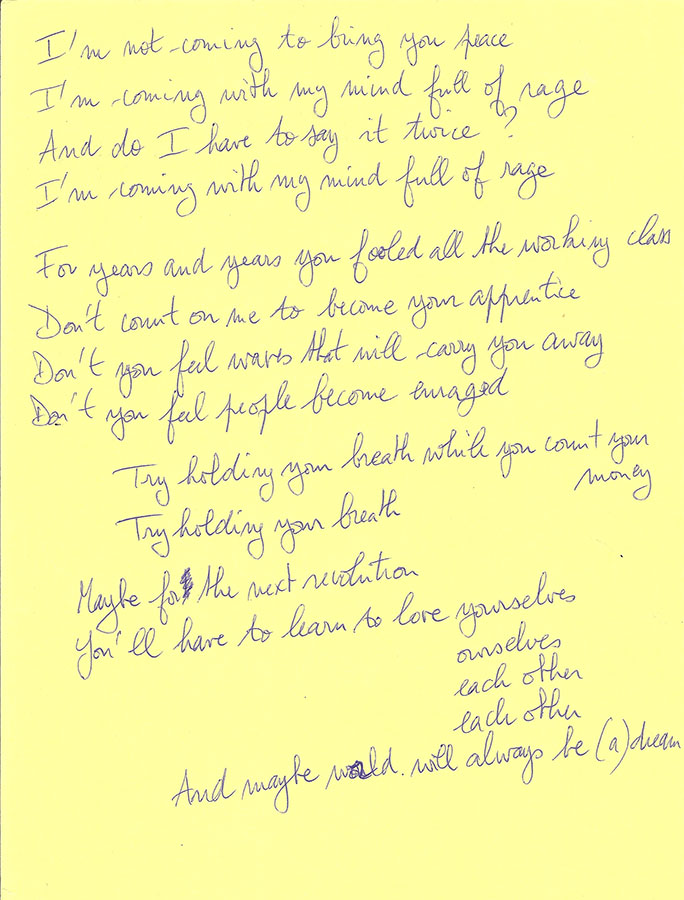 I'm not coming to bring you peace
I'm coming with my mind full of rage
And do I have to say it twice ?
I'm coming with my mind full of rage
For years and years you fooled all the working class
Don't count on me to become your apprentice
Don't you feel waves that will carry you away
Don't you feel people become enraged
Try holding your breath while you count your
money
Try holding your breath
Maybe for the next revolution
You'll have to learn to love yourselves
ourselves
each other
each other
And maybe world. will always be (a) dream